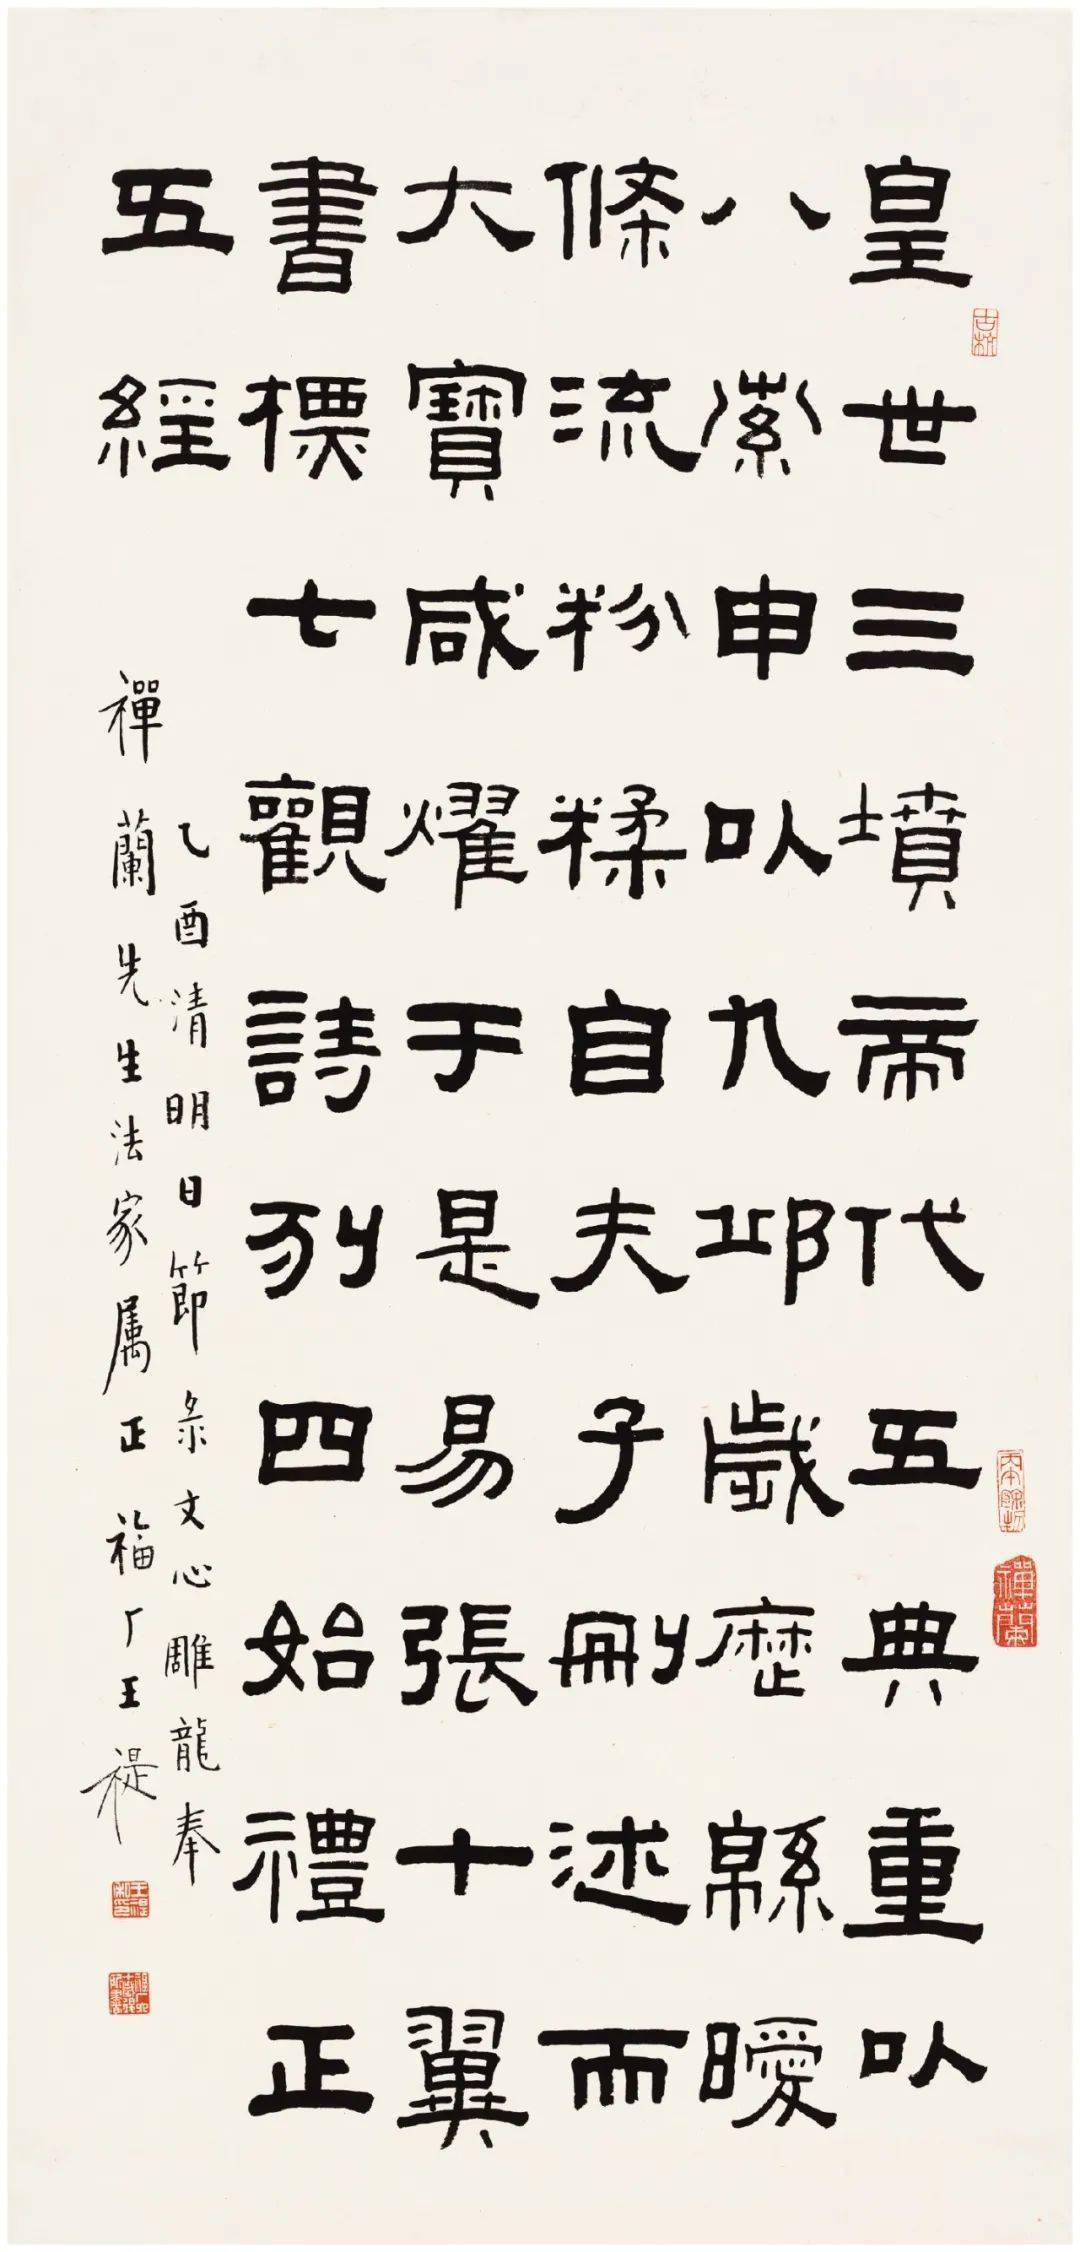 皇世三墳帝代五典重以
八索申以九邱歲歷緜曖
條流粉糅自夫子刪述而
大寶咸燿于是易張十翼
書標七觀詩列四始禮正
五經
乙酉清明日節彔文心雕龍奉
禪蘭先生法家属正 福厂王禔
古杭
禪蘭
王禔私印